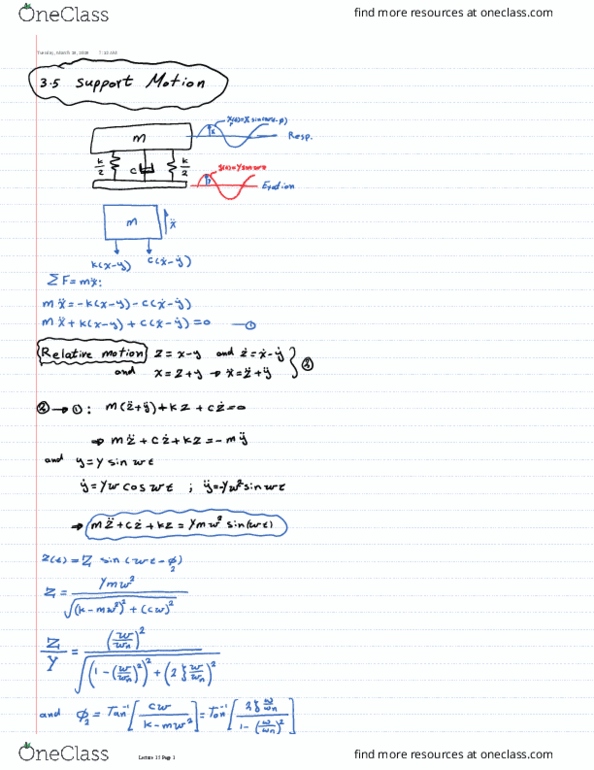 OneClass
find more resources at oneclass.com
Tuesday, March 2018
3.5 Support Motion
x(t)=X sin(ωt-φ)
m
Resp.
k/2 c k/2
y(t)=Y sin ωt
m ẍ
k(x-y) c(ẋ-ẏ)
ΣF=mẍ:
mẍ=-k(x-y)-c(ẋ-ẏ)
mẍ+k(x-y)+c(ẋ-ẏ)=0 —①
Relative motion z=x-y and ż=ẋ-ẏ
and x=z+y → ẍ=z̈+ÿ } ②
② → ①: m(z̈+ÿ)+kz+cż=0
⇒ mz̈+cż+kz=-mÿ
and y=Y sin ωt
ẏ=Yω cos ωt ; ÿ=-Yω² sin ωt
→ mz̈+cż+kz=Ymω² sin(ωt)
z(t)=Z sin(ωt-φ₂)
Z = Ymω² / √((k-mω²)²+(cω)²)
Z/Y = (ω/ωn)² / √((1-(ω/ωn)²)²+(2ζ ω/ωn)²)
and φ₂=Tan⁻¹[cω/(k-mω²)]=Tan⁻¹[2ζ ω/ωn / (1-(ω/ωn)²)]
OneClass
Lecture 11 Page 1
find more resources at oneclass.com